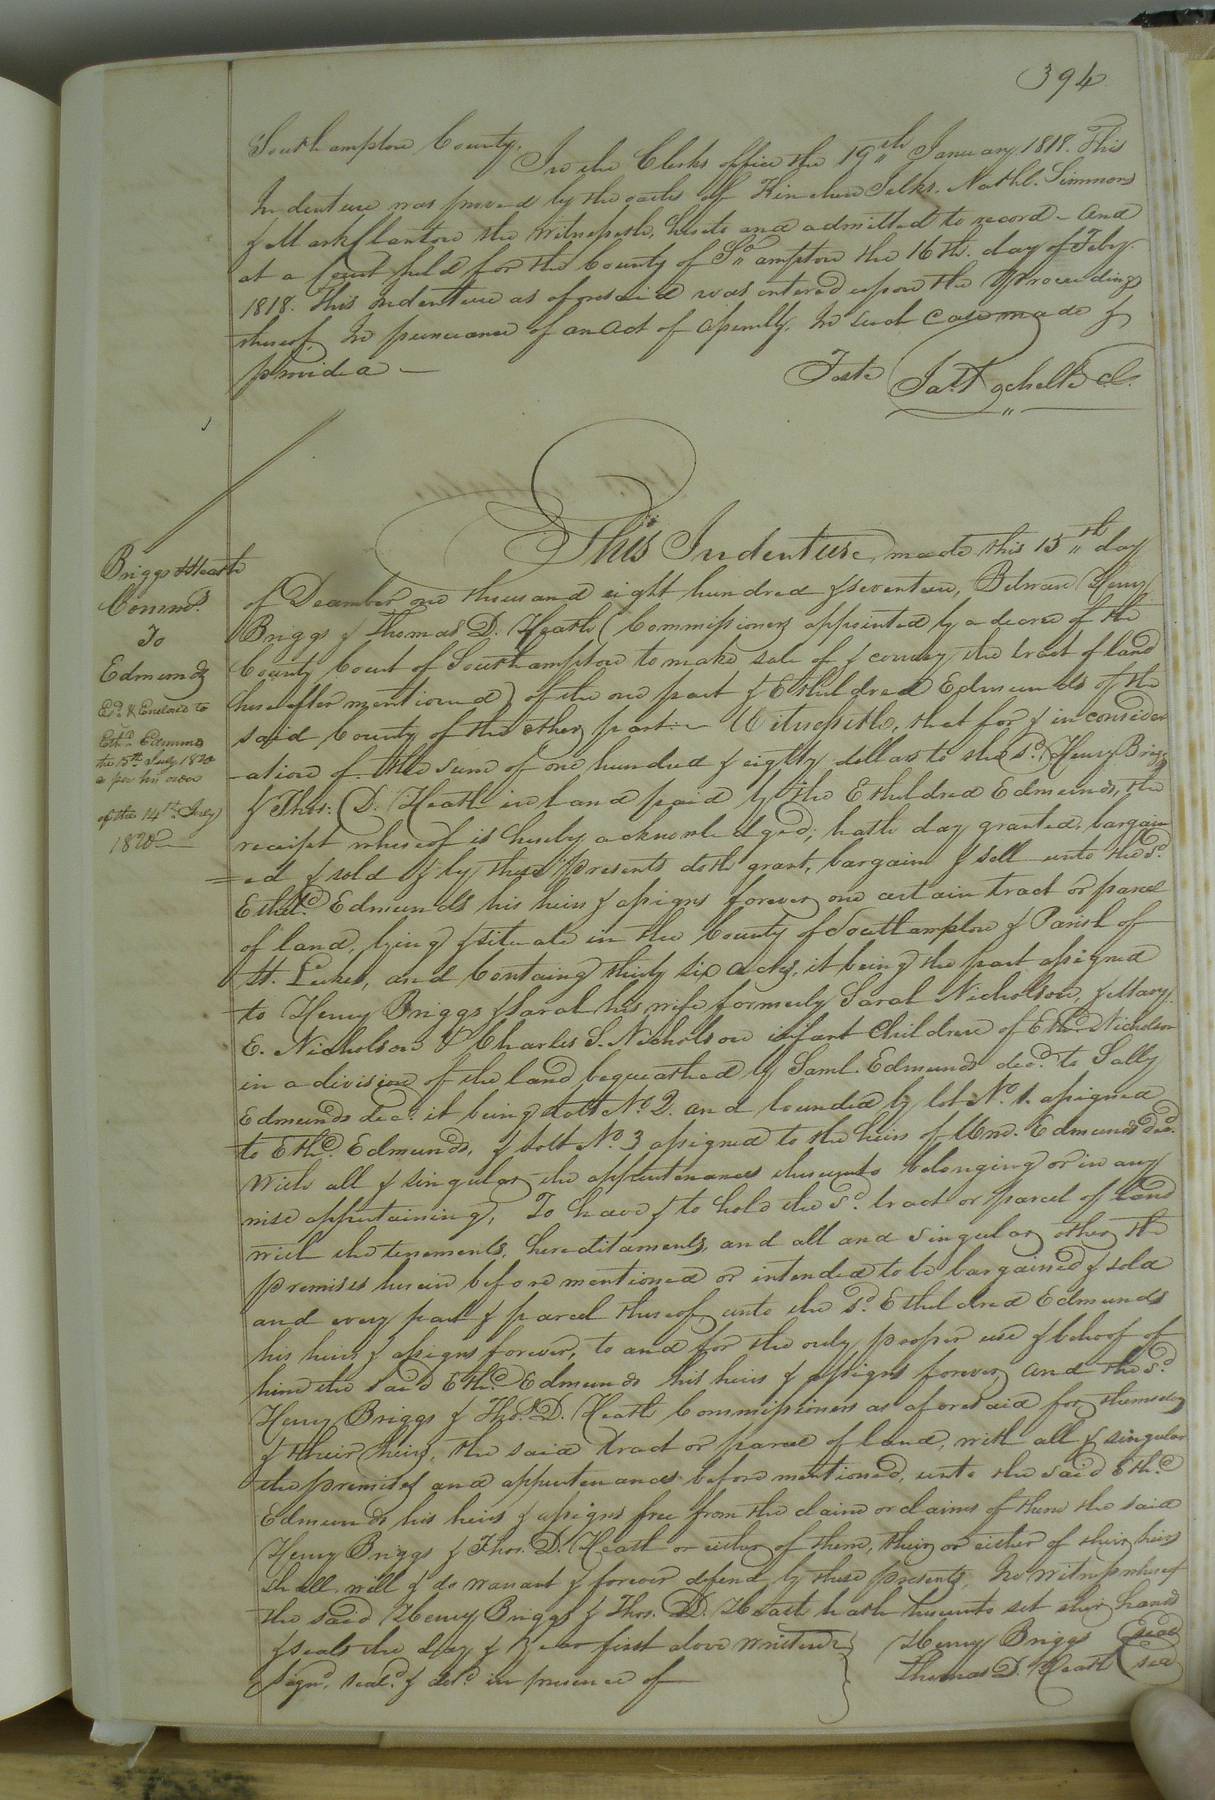 394
Southampton County.
In the Clerks office the 19th January 1818. This
Indenture was proved by the oaths of Kinchen Jelks. Nathl. Simmons
& Mark Clanton the Witnesseth, hereto and admitted to record - And
at a Court held for the County of So,,ampton the 16th. day of Feby.
1818. This Indenture as aforesaid was entered upon the Proceedings
thereof. In pursuance of an Act of Assembly, In such case made &
provided —
Teste Jas. Rochelle C.
Briggs & Heath
Commrs.
To
Edmunds
Exd. & Enclosd to
Ethd. Edmunds
the 15th July 1820
as per his order
of the 14th July
1820
This Indenture, made this 15th day
of December one thousand eight hundred & seventeen, Between Henry
Briggs & Thomas D. Heath (Commissioners appointed by a decree of the
County Court of Southampton to make sale of & convey the tract of land
hereafter mentioned) of the one part & Etheldred Edmunds of the
said County of the other part - Witnesseth, that for & in consider
-ation of the sum of one hundred & eighty dollars to the sd. Henry Briggs
& Thos: D. Heath in hand paid by the Etheldred Edmunds, the
receipt whereof is hereby acknowledged, hath day granted, bargain
=ed & sold & by these Presents doth grant, bargain & sell unto the sd.
Etheld. Edmunds his heirs & assigns forever one certain tract or parcel
of land, lying & situate in the County of Southampton & Parish of
St. Lukes, and Containg thirty six acres, it being the part assigned
to Henry Briggs & Sarah his wife formerly Sarah Nicholson, & Mary
E. Nicholson & Charles S. Nicholson infant Children of Ethd. Nicholson
in a division of the land bequeathed by Saml. Edmunds decd. to Sally
Edmunds decd. it being Lott No. 2. and bounded by lot No. 1. assigned
to Ethd. Edmunds, & Lott No. 3 assigned to the heirs of Wm. Edmunds decd.
With all & singular the appurtenances thereunto belonging or in any
wise appertaining, To have & to hold the sd. tract or parcel of land
with the tenements, hereditaments, and all and singular other the
premises herein before mentioned or intended to be bargained & sold
and every part & parcel thereof unto the sd. Etheldred Edmunds
his heirs & assigns forever, to and for the only proper use & behoof of
him the said Ethd. Edmunds his heirs & assigns forever and the sd.
Henry Briggs & Thos. D. Heath Commissioners as aforesaid for themselves
& their heirs, the said tract or parcel of land, with all & singular
the premises and appurtenances before mentioned, unto the said Ethd.
Edmunds his heirs & assigns free from the claim or claims of them the said
Henry Briggs & Thos. D. Heath or either of them, their or either of their heirs
shall, will & do warrant & forever defend by these presents, In witness whereof
the said Henry Briggs & Thos. D. Heath hath hereunto set their hands
& seals the day & year first above written
Henry Briggs (seal
Signd. seald. & deld. in presence of
Thomas D. Heath (seal